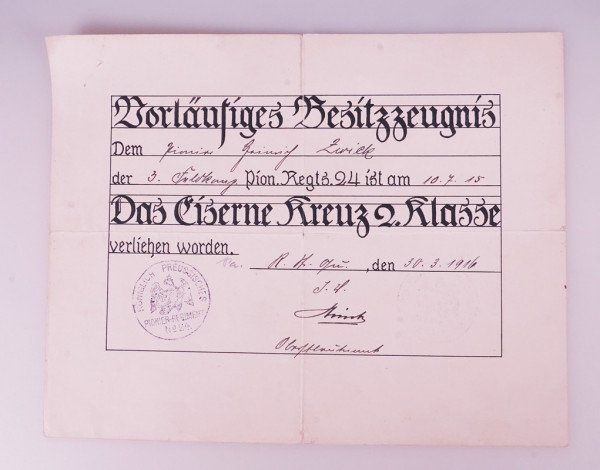 Vorläufiges Besitzzeugnis
Dem Pionier Heinrich Zwick
der 3. Feldkomp Pion. Regts. 24 ist am 10.7.15
Das Eiserne Kreuz 2. Klasse
verliehen worden.
R. St. Qu., den 30.3.1916
I.V.
Oberstleutnant
KÖNIGLICH PREUSSISCHES
PIONIER-REGIMENT
No 24